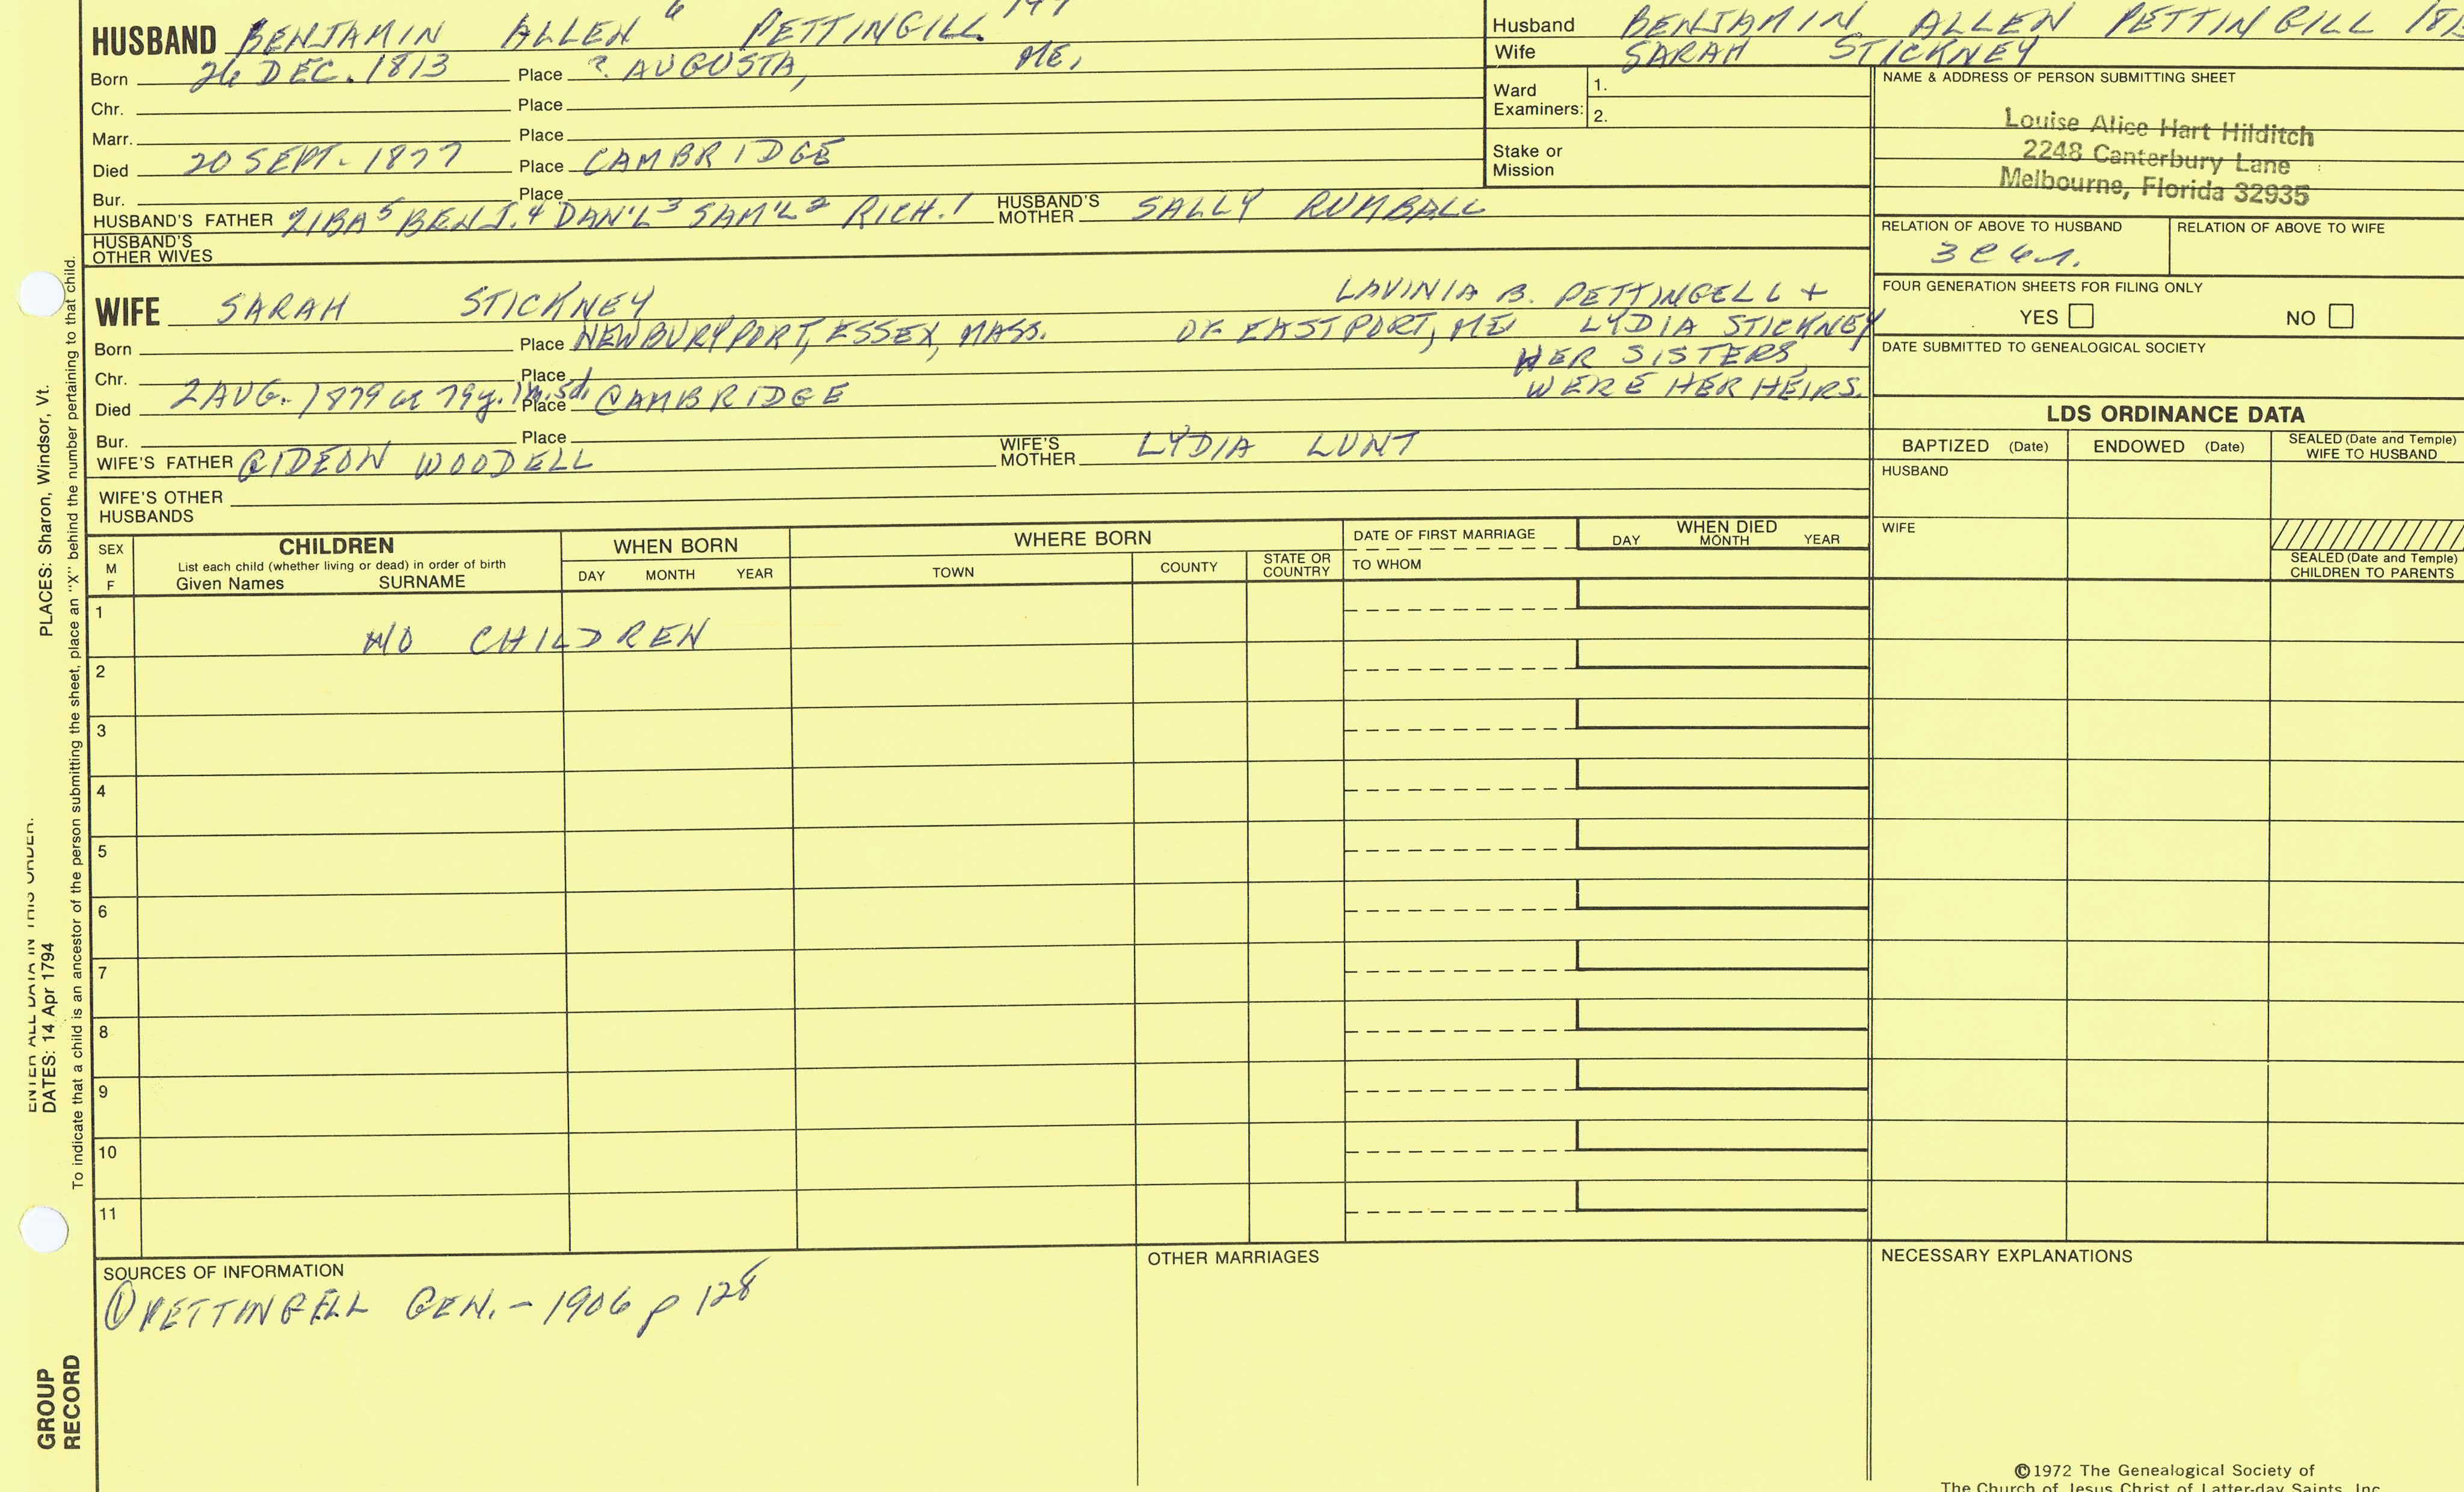 HUSBAND BENJAMIN ALLEN 6 PETTINGILL
Born 26 DEC. 1813 Place ? AUGUSTA, ME.
Chr. Place
Marr. Place
Died 20 SEPT. 1877 Place CAMBRIDGE
Bur. Place
HUSBAND'S FATHER ZIBA 5 BENJ. 4 DAN'L 3 SAM'L 2 RICH. 1 HUSBAND'S MOTHER SALLY RUMBALL
HUSBAND'S OTHER WIVES
Husband BENJAMIN ALLEN PETTINGILL
Wife SARAH STICKNEY
Ward Examiners: 1.
2.
Stake or Mission
NAME & ADDRESS OF PERSON SUBMITTING SHEET
Louise Alice Hart Hilditch
2248 Canterbury Lane
Melbourne, Florida 32935
RELATION OF ABOVE TO HUSBAND RELATION OF ABOVE TO WIFE
FOUR GENERATION SHEETS FOR FILING ONLY
YES NO
DATE SUBMITTED TO GENEALOGICAL SOCIETY
WIFE SARAH STICKNEY LAVINIA B. PETTINGELL +
Born Place NEWBURYPORT, ESSEX, MASS. OF EASTPORT, ME LYDIA STICKNEY
HER SISTERS
Chr. Place
WERE HER HEIRS.
Died 2 AUG. 1879 79y. 1m. 5d. Place CAMBRIDGE
Bur. Place
WIFE'S FATHER GIDEON WOODELL WIFE'S MOTHER LYDIA LUNT
WIFE'S OTHER HUSBANDS
LDS ORDINANCE DATA
BAPTIZED (Date) ENDOWED (Date) SEALED (Date and Temple) WIFE TO HUSBAND
HUSBAND
WIFE
SEALED (Date and Temple) CHILDREN TO PARENTS
SEX M F
CHILDREN
List each child (whether living or dead) in order of birth
Given Names SURNAME
WHEN BORN
DAY MONTH YEAR
WHERE BORN
TOWN COUNTY STATE OR COUNTRY
DATE OF FIRST MARRIAGE
TO WHOM
WHEN DIED
DAY MONTH YEAR
1 NO CHILDREN
2
3
4
5
6
7
8
9
10
11
SOURCES OF INFORMATION
① PETTINGELL GEN. - 1906 p 128
OTHER MARRIAGES
NECESSARY EXPLANATIONS
©1972 The Genealogical Society of
The Church of Jesus Christ of Latter-day Saints, Inc.
ENTER ALL DATA IN THIS ORDER:
DATES: 14 Apr 1794 PLACES: Sharon, Windsor, Vt.
To indicate that a child is an ancestor of the person submitting the sheet, place an "X" behind the number pertaining to that child.
GROUP
RECORD